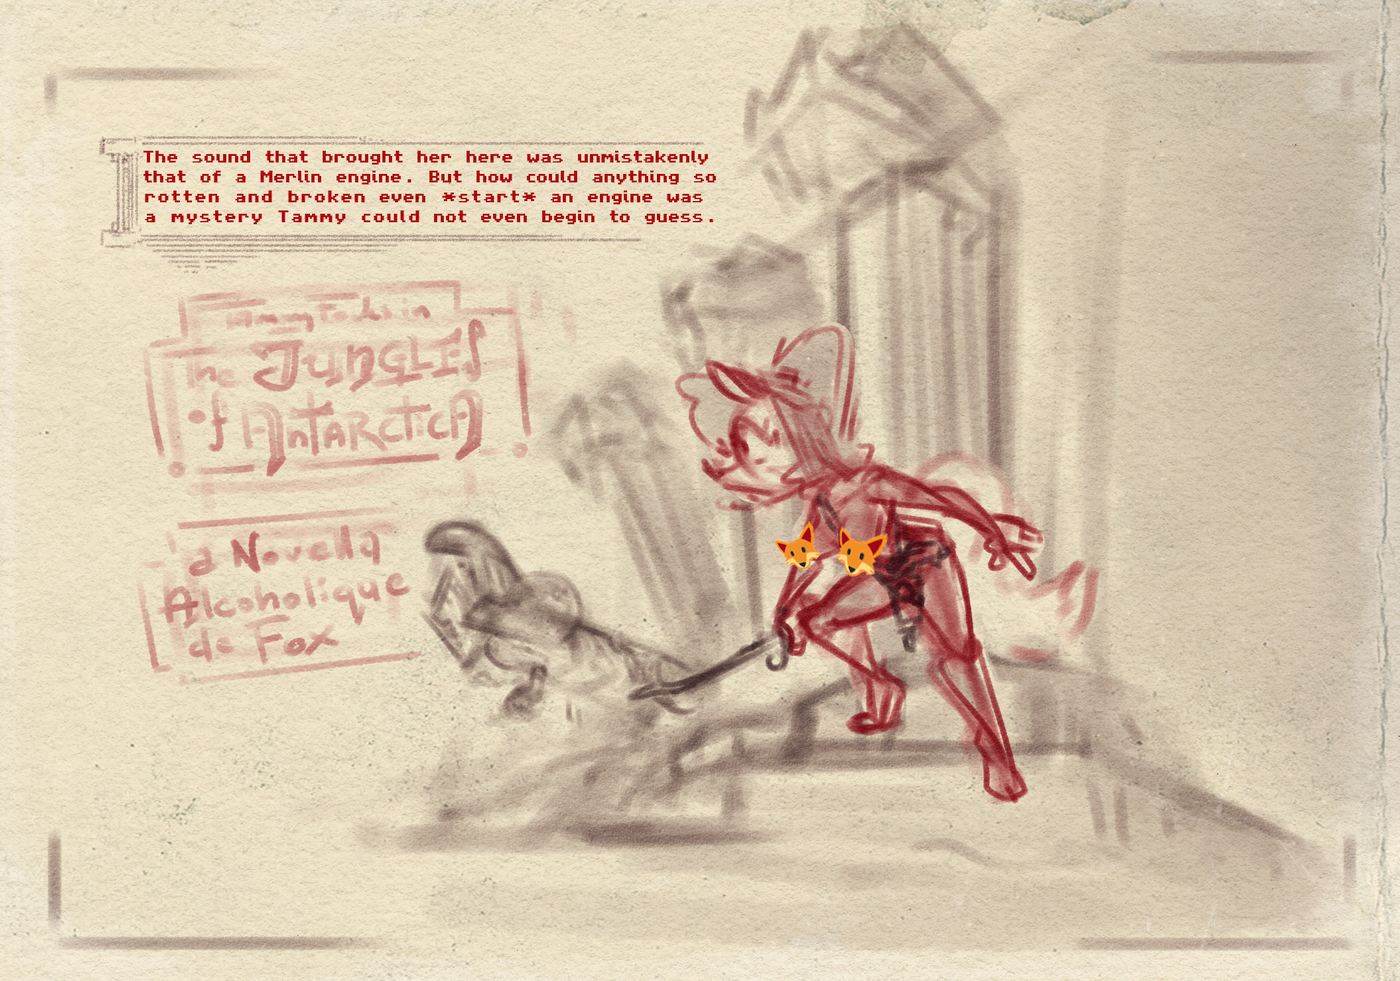 The sound that brought her here was unmistakenly
that of a Merlin engine. But how could anything so
rotten and broken even *start* an engine was
a mystery Tammy could not even begin to guess.
in
the JUNGLES
of ANTARCTICA
a Novella
Alcoholique
de Fox